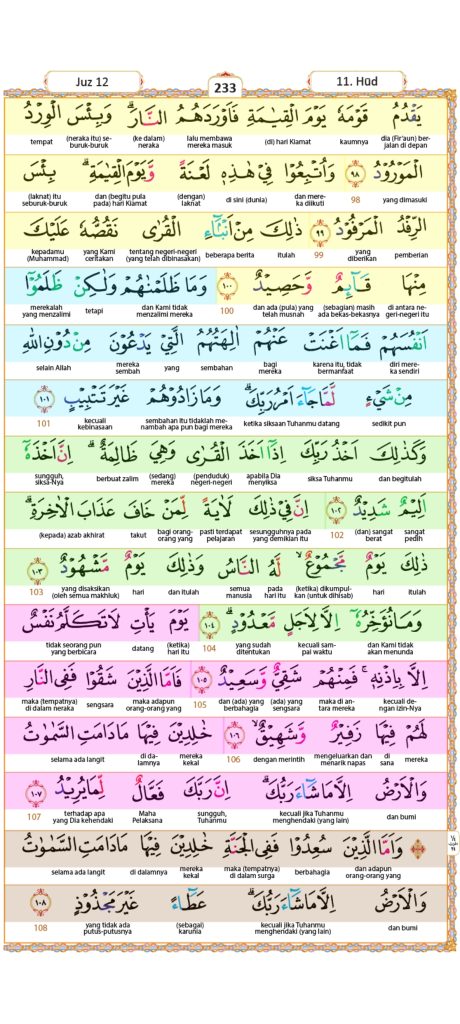 Juz 12
233
11. Hūd
يَقْدُمُ قَوْمَهٗ يَوْمَ الْقِيٰمَةِ فَاَوْرَدَهُمُ النَّارَ ۗ وَبِئْسَ الْوِرْدُ
dia (Fir'aun) berjalan di depan kaumnya (di) hari Kiamat lalu membawa mereka masuk (ke dalam) neraka (neraka itu) seburuk-buruk tempat
الْمَوْرُوْدُ ٩٨ وَاُتْبِعُوْا فِيْ هٰذِهٖ لَعْنَةً وَّيَوْمَ الْقِيٰمَةِ ۗ بِئْسَ
yang dimasuki 98 dan mereka diikuti di sini (dunia) (dengan) laknat dan (begitu pula pada) hari Kiamat (laknat) itu seburuk-buruk
الرِّفْدُ الْمَرْفُوْدُ ٩٩ ذٰلِكَ مِنْ اَنْۢبَاۤءِ الْقُرٰى نَقُصُّهٗ عَلَيْكَ
pemberian yang diberikan 99 itulah beberapa berita tentang negeri-negeri (yang telah dibinasakan) yang Kami ceritakan kepadamu (Muhammad)
مِنْهَا قَاۤىِٕمٌ وَّحَصِيْدٌ ١٠٠ وَمَا ظَلَمْنٰهُمْ وَلٰكِنْ ظَلَمُوْٓا
di antara negeri-negeri itu (sebagian) masih ada bekas-bekasnya dan ada (pula) yang telah musnah 100 dan Kami tidak menzalimi mereka tetapi merekalah yang menzalimi
اَنْفُسَهُمْ فَمَآ اَغْنَتْ عَنْهُمْ اٰلِهَتُهُمُ الَّتِيْ يَدْعُوْنَ مِنْ دُوْنِ اللّٰهِ
diri mereka sendiri karena itu, tidak bermanfaat bagi mereka sembahan yang mereka sembah selain Allah
مِنْ شَيْءٍ لَّمَّا جَاۤءَ اَمْرُ رَبِّكَ ۗ وَمَا زَادُوْهُمْ غَيْرَ تَتْبِيْبٍ ١٠١
sedikit pun ketika siksaan Tuhanmu datang sembahan itu tidaklah menambah apa pun bagi mereka kecuali kebinasaan 101
وَكَذٰلِكَ اَخْذُ رَبِّكَ اِذَآ اَخَذَ الْقُرٰى وَهِيَ ظَالِمَةٌ ۗ اِنَّ اَخْذَهٗٓ
dan begitulah siksa Tuhanmu apabila Dia menyiksa (penduduk) negeri-negeri (sedang) mereka berbuat zalim sungguh, siksa-Nya
اَلِيْمٌ شَدِيْدٌ ١٠٢ اِنَّ فِيْ ذٰلِكَ لَاٰيَةً لِّمَنْ خَافَ عَذَابَ الْاٰخِرَةِ ۗ
sangat pedih (dan) sangat berat 102 sesungguhnya pada yang demikian itu pasti terdapat pelajaran bagi orang-orang yang takut (kepada) azab akhirat
ذٰلِكَ يَوْمٌ مَّجْمُوْعٌ ۙ لَّهُ النَّاسُ وَذٰلِكَ يَوْمٌ مَّشْهُوْدٌ ١٠٣
itulah hari (ketika) dikumpulkan (untuk dihisab) pada hari itu semua manusia dan itulah hari yang disaksikan (oleh semua makhluk) 103
وَمَا نُؤَخِّرُهٗٓ اِلَّا لِاَجَلٍ مَّعْدُوْدٍ ۗ ١٠٤ يَوْمَ يَأْتِ لَا تَكَلَّمُ نَفْسٌ
dan Kami tidak akan menunda kecuali sampai waktu yang sudah ditentukan 104 (ketika) hari itu datang tidak seorang pun yang berbicara
اِلَّا بِاِذْنِهٖ ۚ فَمِنْهُمْ شَقِيٌّ وَّسَعِيْدٌ ١٠٥ فَاَمَّا الَّذِيْنَ شَقُوْا فَفِى النَّارِ
kecuali dengan izin-Nya maka di antara mereka (ada) yang sengsara dan (ada) yang berbahagia 105 maka adapun orang-orang yang sengsara maka (tempatnya) di dalam neraka
لَهُمْ فِيْهَا زَفِيْرٌ وَّشَهِيْقٌ ۙ ١٠٦ خٰلِدِيْنَ فِيْهَا مَا دَامَتِ السَّمٰوٰتُ
mereka di sana mengeluarkan dan menarik napas dengan merintih 106 mereka kekal di dalamnya selama ada langit
وَالْاَرْضُ اِلَّا مَا شَاۤءَ رَبُّكَ ۗ اِنَّ رَبَّكَ فَعَّالٌ لِّمَا يُرِيْدُ ١٠٧
dan bumi kecuali jika Tuhanmu menghendaki (yang lain) sungguh, Tuhanmu Maha Pelaksana terhadap apa yang Dia kehendaki 107
۞ وَاَمَّا الَّذِيْنَ سُعِدُوْا فَفِى الْجَنَّةِ خٰلِدِيْنَ فِيْهَا مَا دَامَتِ السَّمٰوٰتُ
dan adapun orang-orang yang berbahagia maka (tempatnya) di dalam surga mereka kekal di dalamnya selama ada langit
وَالْاَرْضُ اِلَّا مَا شَاۤءَ رَبُّكَ ۗ عَطَاۤءً غَيْرَ مَجْذُوْذٍ ١٠٨
dan bumi kecuali jika Tuhanmu menghendaki (yang lain) (sebagai) karunia yang tidak ada putus-putusnya 108